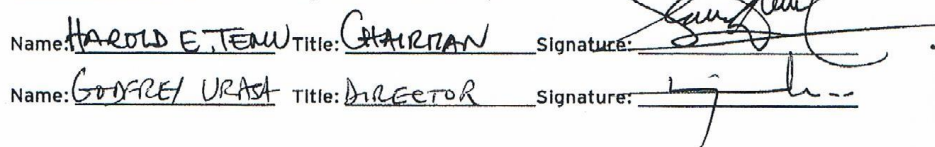 Name: HAROLD E. TEMU Title: CHAIRMAN Signature:
Name: GODFREY URASA Title: DIRECTOR Signature: